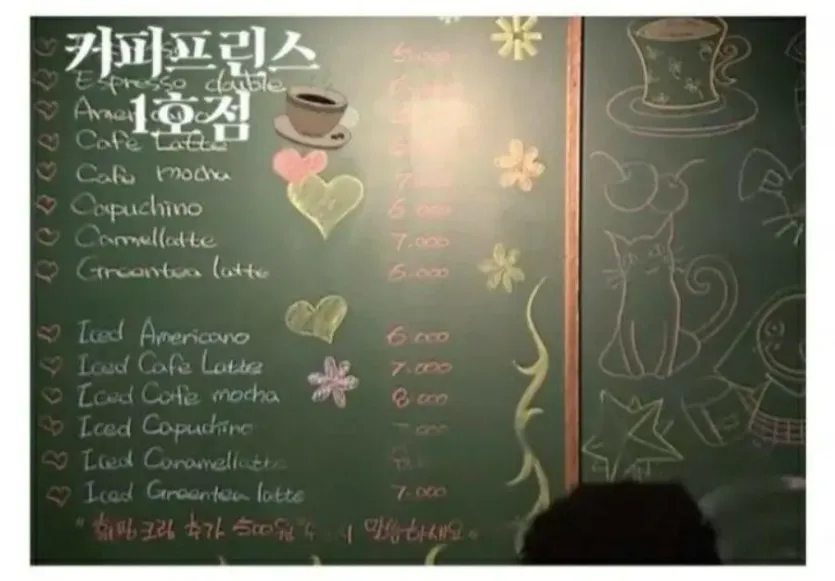 커피프린스
1호점
5.000
Espresso double
Americano
Cafe Latte
Cafe mocha 7.000
Capuchino 6.000
Carmellatte 7.000
Greentea latte 6.000
Iced Americano 6.000
Iced Cafe Latte 7.000
Iced Cafe mocha 8.000
Iced Capuchino
Iced Caramellatte
Iced Greentea latte 7.000
휘핑크림 추가 500원 말씀하세요.